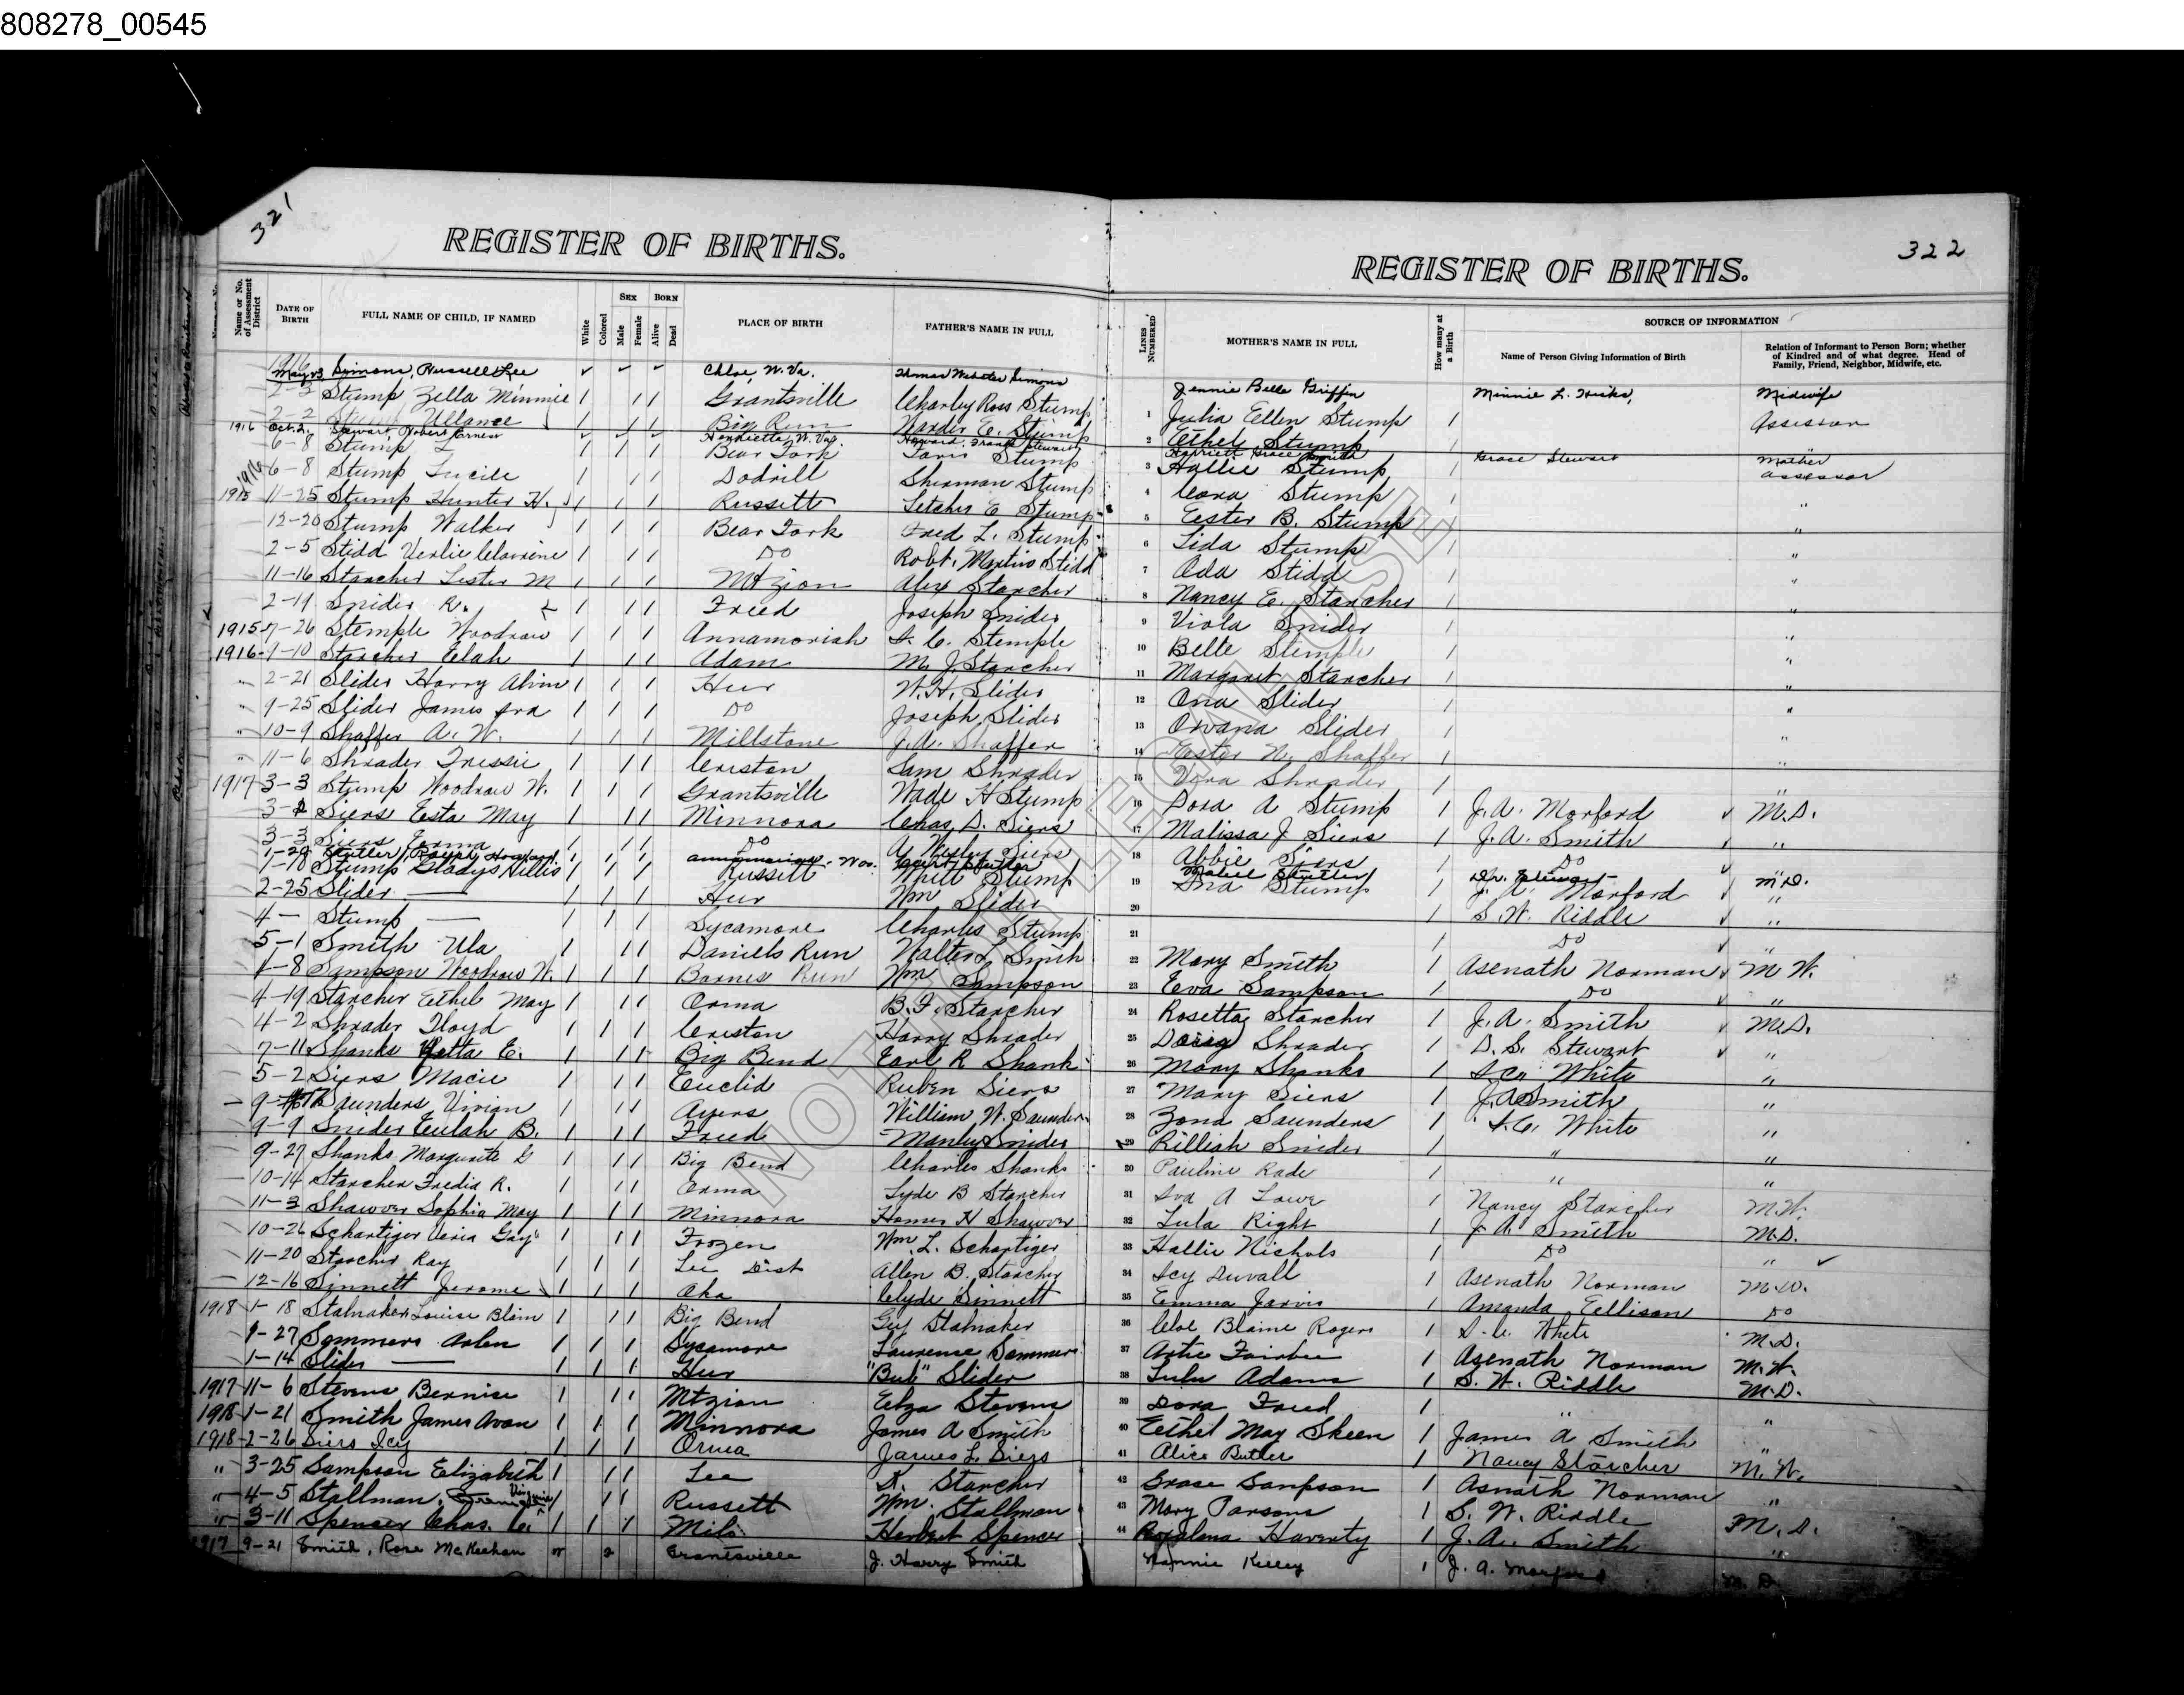 808278_00545
321
REGISTER OF BIRTHS.
322
REGISTER OF BIRTHS.
Name or No. of Assessment District | DATE OF BIRTH | FULL NAME OF CHILD, IF NAMED | White | Colored | SEX Male Female | BORN Alive Dead | PLACE OF BIRTH | FATHER'S NAME IN FULL | LINES NUMBERED | MOTHER'S NAME IN FULL | How many at a Birth | SOURCE OF INFORMATION | Name of Person Giving Information of Birth | Relation of Informant to Person Born; whether of Kindred and of what degree. Head of Family, Friend, Neighbor, Midwife, etc.
1916 May 23 Simons, Russell Lee Chloe, W. Va. Thomas Webster Simons Jennie Belle Griffin Minnie L. Hicks, Midwife
2-3 Stump Zella Minnie 1 1 1 Grantsville Charley Ross Stump 1 Julia Ellen Stump 1 Assessor
2-2 Ullance 1 1 1 Big Run Warder E. Stump 2 Ethel Stump 1
1916 Oct. 2. Stewart, Robert Ernest Henrietta, W. Va. Howard Frank Stewart Harriett Grace Smith Grace Stewart Mother
6-8 Stump 1 1 1 Bear Fork Stump 3 Hallie Stump 1 Assessor
1916 6-8 Stump Lucile 1 1 1 Dodrill Sherman Stump 4 Cora Stump 1 "
1915 11-25 Stump Hunter H. 1 1 1 Russett Letcher E Stump 5 Ester B. Stump 1 "
12-20 Stump Walker 1 1 1 Bear Fork Fred L. Stump 6 Lida Stump 1 "
2-5 Stidd 1 1 1 Do Robt. Martin Stidd 7 Ada Stidd 1 "
11-16 Starcher Lester M 1 1 1 Mt zion Alex Starcher 8 Nancy E. Starcher 1 "
2-19 Snider R. 1 1 1 Freed Joseph Snider 9 Viola Snider 1 "
1915 7-26 Stemple Woodrow 1 1 1 Annamoriah Stemple 10 Belle Stemple 1 "
1916 Starcher Elah 1 1 1 Adam M. J. Starcher 11 Margaret Starcher 1 "
" 2-21 Slider Harry Alvin 1 1 1 Hur W. H. Slider 12 Ona Slider 1 "
" 9-25 Slider James Ira 1 1 1 Do Joseph Slider 13 Orvana Slider 1 "
" 10-9 Shaffer A. W. 1 1 1 Millstone J. A. Shaffer 14 Ester N. Shaffer 1 "
" 11-6 Shrader Tressie 1 1 1 Creston Sam Shrader 15 Vera Shrader 1 "
1917 3-3 Stump Woodrow W. 1 1 1 Grantsville Wade H Stump 16 Dora A Stump 1 J. A. Morford M.D.
Siers Esta May 1 1 1 Minnora Chas. D. Siers 17 Malissa J Siers 1 J. A. Smith "
3-3 Siers 1 1 1 Do A. Wesley Siers 18 Abbie Siers 1 Do "
Ralph Howard W. Va. Mabel Dr. Stewart M.D.
Stump Gladys Hillis 1 1 1 Russett Stump 19 Ina Stump 1 J. A. Morford "
2-25 Slider — 1 1 1 Hur Wm Slider 20 1 S. W. Riddle "
4- Stump — 1 1 1 Sycamore Charles Stump 21 1 Do "
5-1 Smith Ula 1 1 1 Daniels Run Walter L Smith 22 Mary Smith 1 Asenath Norman M W.
1-8 Sampson Woodrow W. 1 1 1 Barnes Run Wm Sampson 23 Eva Sampson 1 Do "
4-19 Starcher Ethel May 1 1 1 Orma B. F. Starcher 24 Rosetta Starcher 1 J. A. Smith M.D.
4-2 Shrader Floyd 1 1 1 Creston Harry Shrader 25 Shrader 1 D. S. Stewart "
7-11 Shanks E. 1 1 1 Big Bend Earl R Shank 26 Mary Shanks 1 White "
5-2 Siers Macie 1 1 1 Euclid Ruben Siers 27 Mary Siers 1 J. A. Smith "
Saunders Vivian 1 1 1 Ayers William W. Saunders 28 Zona Saunders 1 White "
9-9 Snider Eulah B. 1 1 1 Freed Manley Snider 29 Rilliah Snider 1 " "
9-27 Shanks Marguerite G 1 1 1 Big Bend Charles Shanks 30 Pauline Rade 1 " "
10-14 Starcher Fredia R. 1 1 1 Orma Lyde B Starcher 31 Iva A Lowe 1 Nancy Starcher M.W.
11-3 Shawver Sophia May 1 1 1 Minnora Homer H Shawver 32 Lula Right 1 J. A. Smith M.D.
10-26 Schartiger Veria Gay 1 1 1 Frozen Wm. L. Schartiger 33 Hallie Nichols 1 Do "
11-20 Starcher Ray 1 1 1 Lee Dist Allen B. Starcher 34 Icy Duvall 1 Asenath Norman M.W.
12-16 Sinnett Jerome 1 1 1 Aka Clyde Sinnett 35 Emma Jarvis 1 Amanda Ellison Do
1918 1-18 Stalnaker Louise Blain 1 1 1 Big Bend Guy Stalnaker 36 Cloe Blaine Rogers 1 White M.D.
1-27 Sommers Arlen 1 1 1 Sycamore Laurence Sommers 37 Artie 1 Asenath Norman M.W.
1-14 Slider — 1 1 1 Hur "Bub" Slider 38 Lulu Adams 1 S. W. Riddle M.D.
1917 11-6 Stevens Bernice 1 1 1 Mtzion Elza Stevens 39 Dora Freed 1 " "
1918 1-21 Smith James Avon 1 1 1 Minnora James A Smith 40 Ethel May Skeen 1 James A Smith "
1918 2-26 Siers Icy 1 1 1 Orma James L. Siers 41 Alice Butler 1 Nancy Starcher M. W.
" 3-25 Sampson Elizabeth 1 1 1 Lee Starcher 42 Grase Sampson 1 Asnath Norman "
" 4-5 Stallman, Virginia 1 1 1 Russett Wm. Stallman 43 Mary Parsons 1 S. W. Riddle M. D.
" 3-11 Spencer Chas. 1 1 1 Milo Herbert Spencer 44 Haverty 1 J. A. Smith "
1917 9-21 Smith, Rose McKeehan w 2 Grantsville J. Harry Smith Nannie Kelley 1 J. A. Morford M. D.
NOT FOR LEGAL USE